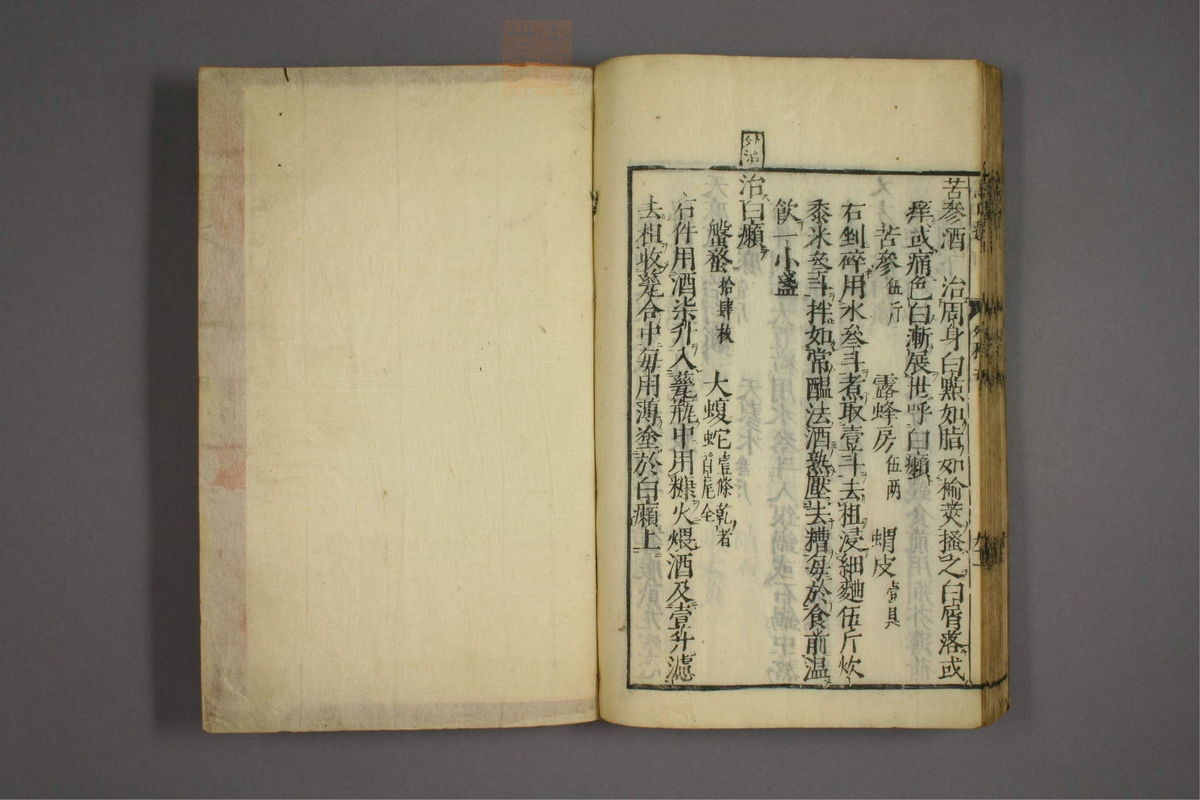 苦參酒 治周身白點如脂如榆莢搔之白屑落或
痒或痛色白漸展世呼白癩
苦參伍斤 露蜂房伍兩 蝟皮壹具
右剉碎用水叄斗煮取壹斗去柤浸細麯伍斤炊
黍米叄斗拌如常醖法酒熟壓去糟每於食前温
飲一小盞
治白癩
螌蝥拾肆枚 大蝮蛇壹條乾者蛇首尾全
右件用酒柒升入甆瓶中用糠火煨酒及壹升濾
去柤收甆合中每用薄塗於白癩上